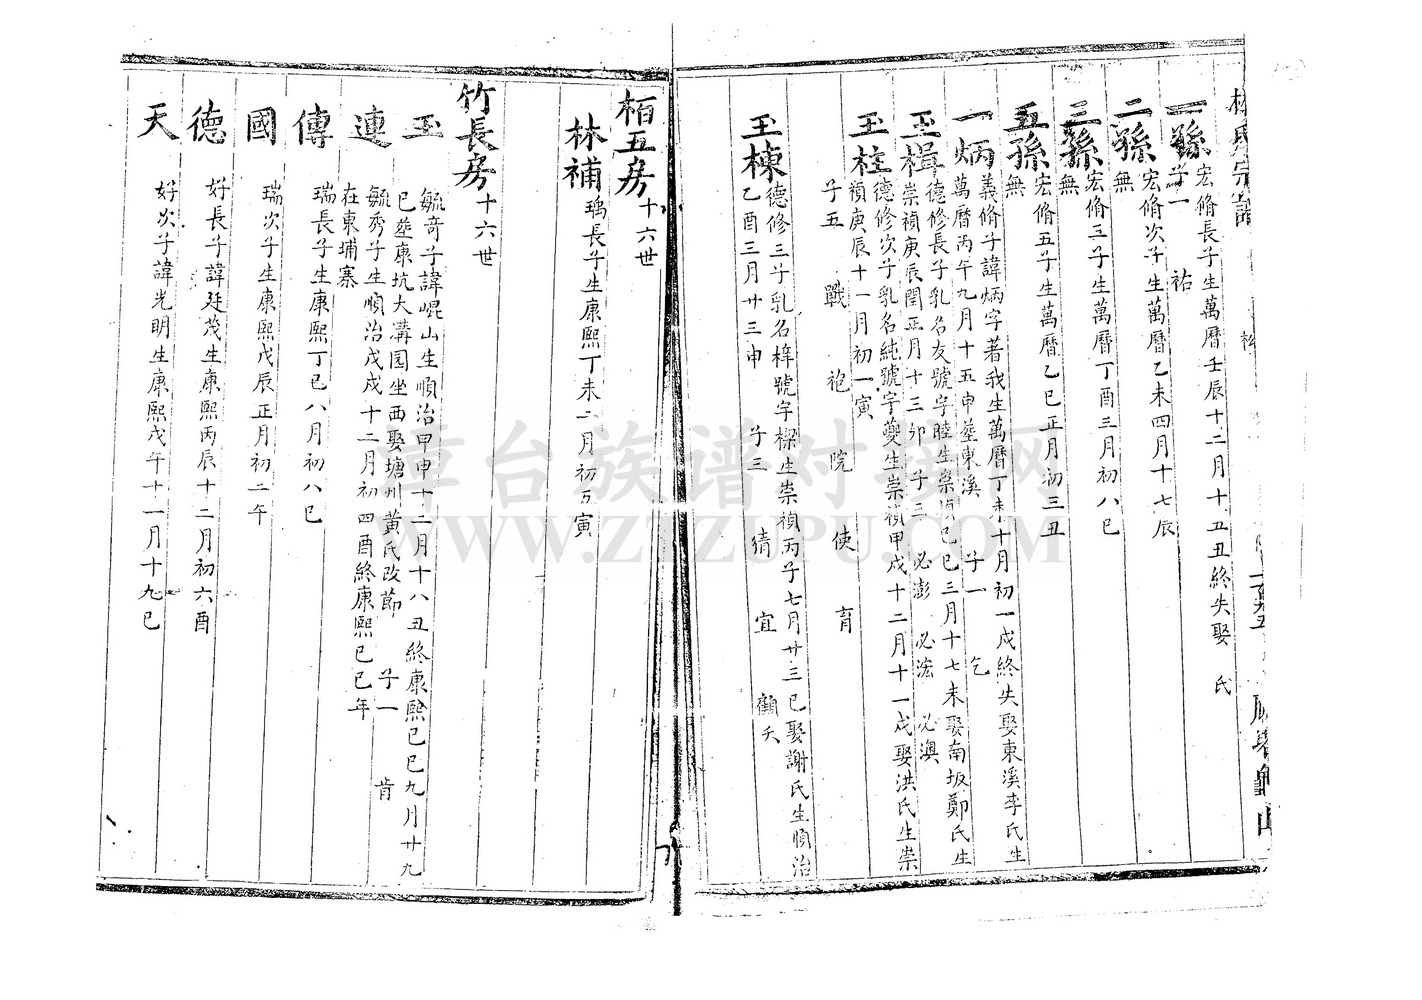 林氏宗譜
一孫 宏脩長子生萬曆壬辰十二月十丑丑終失娶 氏
子一 祐
二孫 宏脩次子生萬曆乙未四月十七辰
無
三孫 宏脩三子生萬曆丁酉三月初八巳
無
五孫 宏脩五子生萬曆乙巳正月初三丑
無
一炳 義脩子諱炳字著我生萬曆丁未十月初一戌終失娶東溪李氏生
萬曆丙午九月十五申塟東溪 子一 乞
玉楫 德修長子乳名友號字睦生崇禎己巳三月十七未娶南坂鄭氏生
崇禎庚辰閏正月十三卯 子三 必澎 必浤 必澳
玉柱 德修次子乳名純號字夔生崇禎甲戌十二月十一戌娶洪氏生崇
禎庚辰十一月初一寅
子五 戰 袍 院 使 育
玉棟 德修三子乳名梓號字樑生崇禎丙子七月廿三巳娶謝氏生順治
乙酉三月廿三申 子三 猜 宜 顧夭
栢五房 十六世
林補 瑀長子生康熙丁未二月初五寅
竹長房 十六世
玉 毓奇子諱崐山生順治甲申十二月十八丑終康熙己巳九月廿九
巳塟康坑大溝园坐西娶塘州黃氏改節 子一 肯
連 毓秀子生順治戊戌十二月初四酉終康熙己巳年
在東埔寨
傳 瑞長子生康熙丁巳八月初八巳
國 瑞次子生康熙戊辰正月初二午
德 好長子諱廷茂生康熙丙辰十二月初六酉
天 好次子諱光明生康熙戊午十一月十九巳
漳台族谱对接网
WWW.ZTZUPU.COM